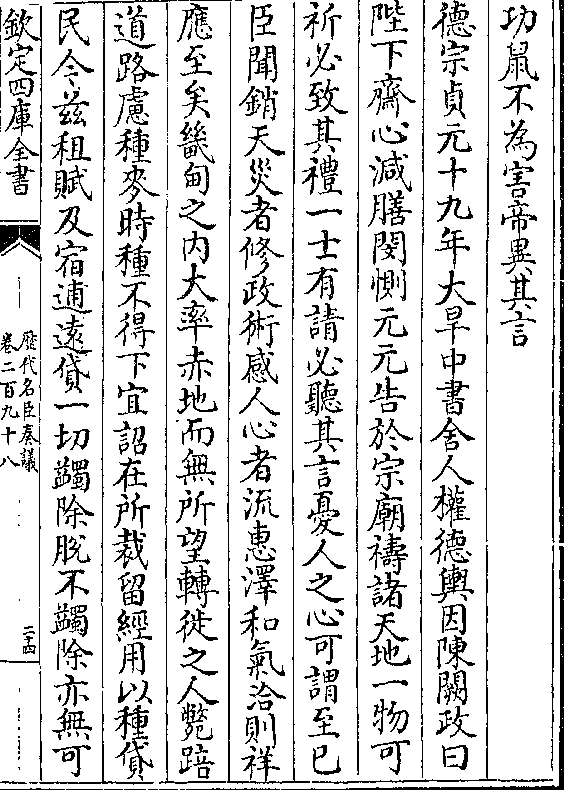 功鼠不為害帝異其言
德宗貞元十九年大旱中書舍人權德輿因陳闕政曰
陛下齋心減膳閔惻元元告於宗廟禱諸天地一物可
祈必致其禮一士有請必聽其言憂人之心可謂至已
臣聞銷天災者修政術感人心者流惠澤和氣洽則祥
應至矣畿甸之内大率赤地而無所望轉徙之人斃踣
道路慮種麥時種不得下宜詔在所裁留經用以種貸
民今茲租賦及宿逋遠貸一切蠲除脫不蠲除亦無可
欽定四庫全書
歷代名臣奏議
卷二百九十八
二十四